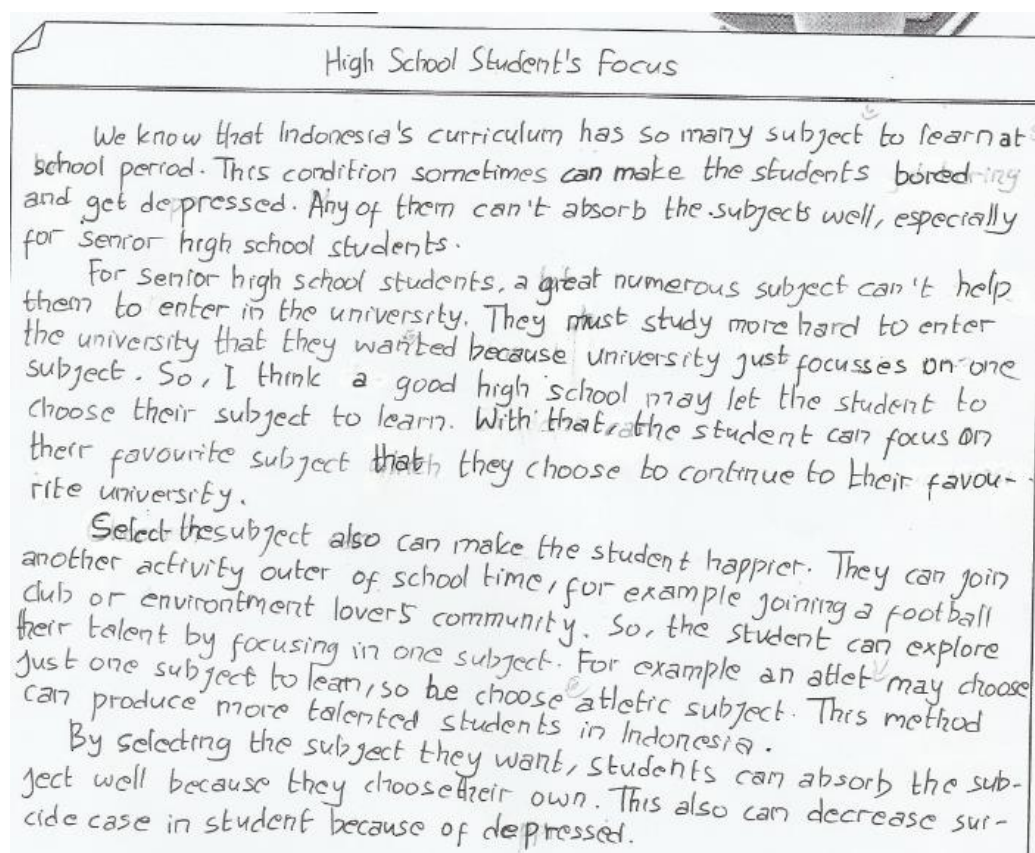 High School Student's Focus
We know that Indonesia's curriculum has so many subject to learn at
school period. This condition sometimes can make the students bored
and get depressed. Any of them can't absorb the subjects well, especially
for senior high school students.
For senior high school students, a great numerous subject can't help
them to enter in the university. They must study more hard to enter
the university that they wanted because university just focusses on one
subject. So, I think a good high school may let the student to
choose their subject to learn. With that, the student can focus on
their favourite subject that they choose to continue to their favou-
rite university.
Select the subject also can make the student happier. They can join
another activity outer of school time, for example joining a football
club or environtment lovers community. So, the student can explore
their talent by focusing in one subject. For example an atlet may choose
just one subject to learn, so he choose atletic subject. This method
can produce more talented students in Indonesia.
By selecting the subject they want, students can absorb the sub-
ject well because they choose their own. This also can decrease sui-
cide case in student because of depressed.